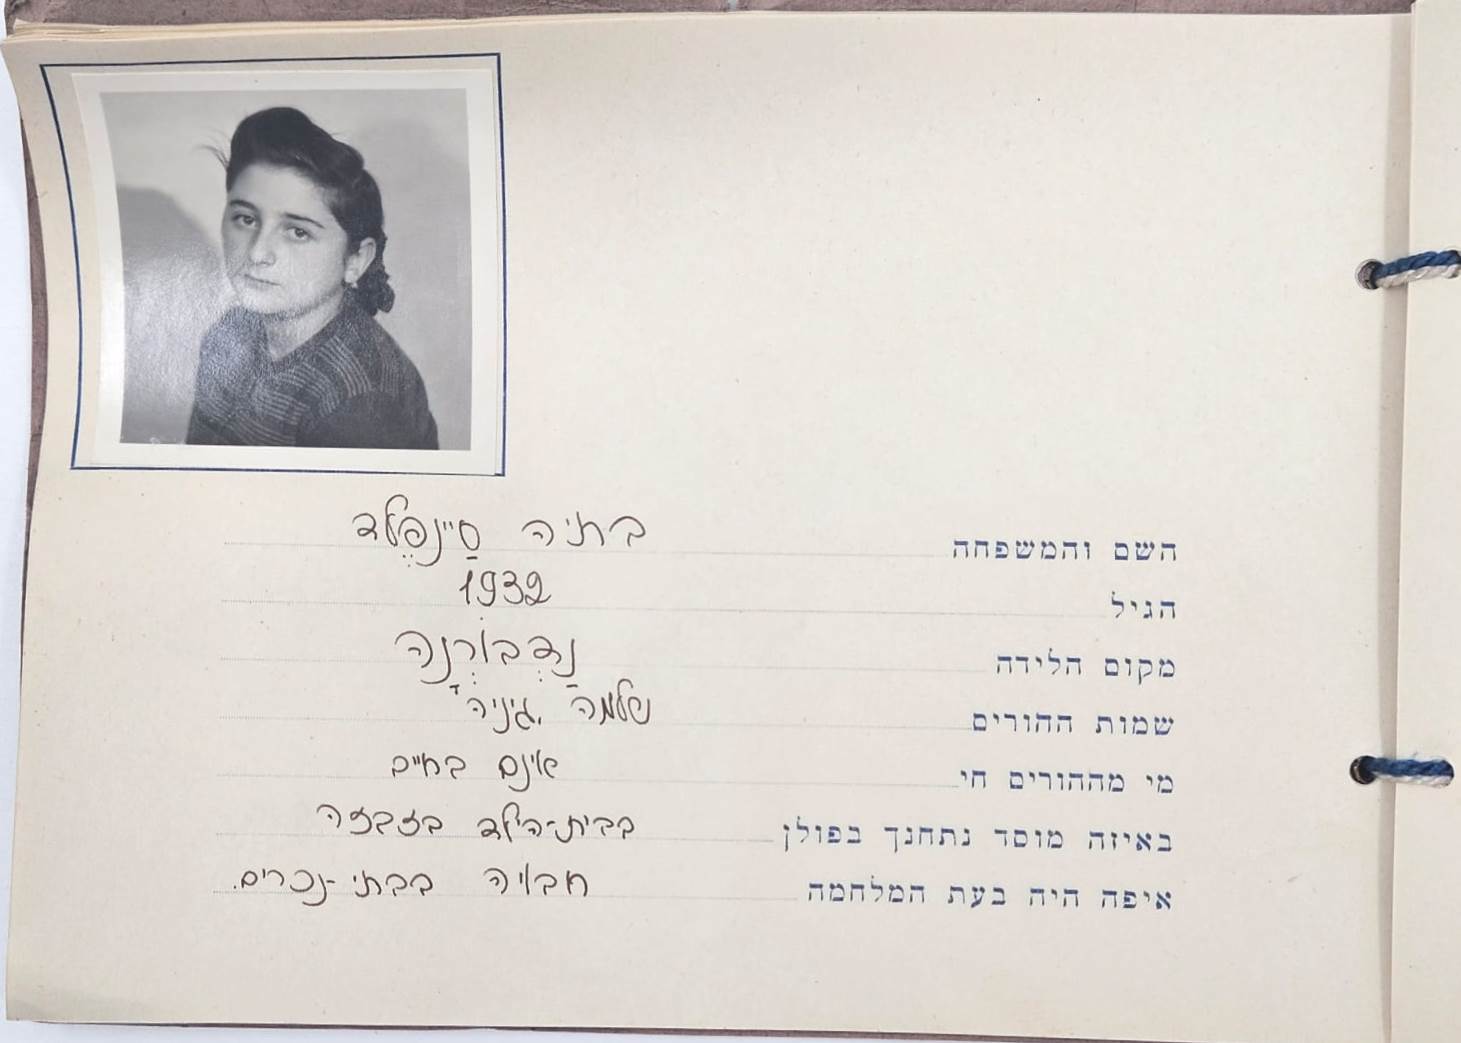 השם והמשפחה בתיה סַיינפֶלד
הגיל 1932
מקום הלידה נַדְבוֹרְנָה
שמות ההורים שלמה, גיניה
מי מההורים חי אינם בחיים
באיזה מוסד נתחנך בפולן בבית-הילד בזבזה
איפה היה בעת המלחמה חבויה בבתי-נכרים.